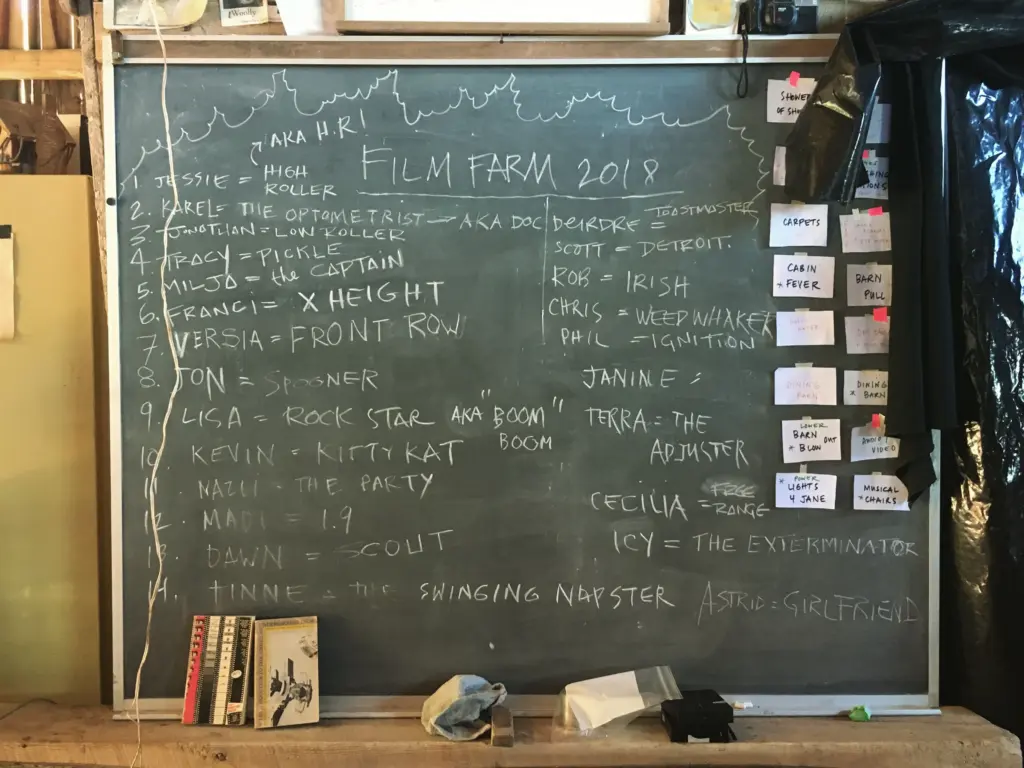 Woolly
AKA H.R!
FILM FARM 2018
1 JESSIE = HIGH
ROLLER
2. KAREL = THE OPTOMETRIST — AKA DOC
3. JONATHAN = LOW ROLLER
4. TRACY = PICKLE
5. MILJA = the CAPTAIN
6. FRANCI = X HEIGHT
7. VERSIA = FRONT ROW
8. JON = SPOONER
9. LISA = ROCK STAR AKA "BOOM"
BOOM
10. KEVIN = KITTY KAT
11 NAZLI = THE PARTY
12. MADI = 1.9
13. DAWN = SCOUT
14. TINNE = THE SWINGING NAPSTER
DEIRDRE = TOASTMASTER
SCOTT = DETROIT.
ROB = IRISH
CHRIS = WEEDWHAKER
PHIL = IGNITION
JANINE =
TERRA = THE
ADJUSTER
CECILIA = FREE
RANGE
ICY = THE EXTERMINATOR
ASTRID = GIRLFRIEND
SHOWER
OF SHO
CARPETS
CABIN
* FEVER
BARN
PULL
DINING
BARN
X DINING
BARN
LOWER
BARN
* BLOW OUT
VIDEO
* POWER
LIGHTS
4 JANE
MUSICAL
* CHAIRS